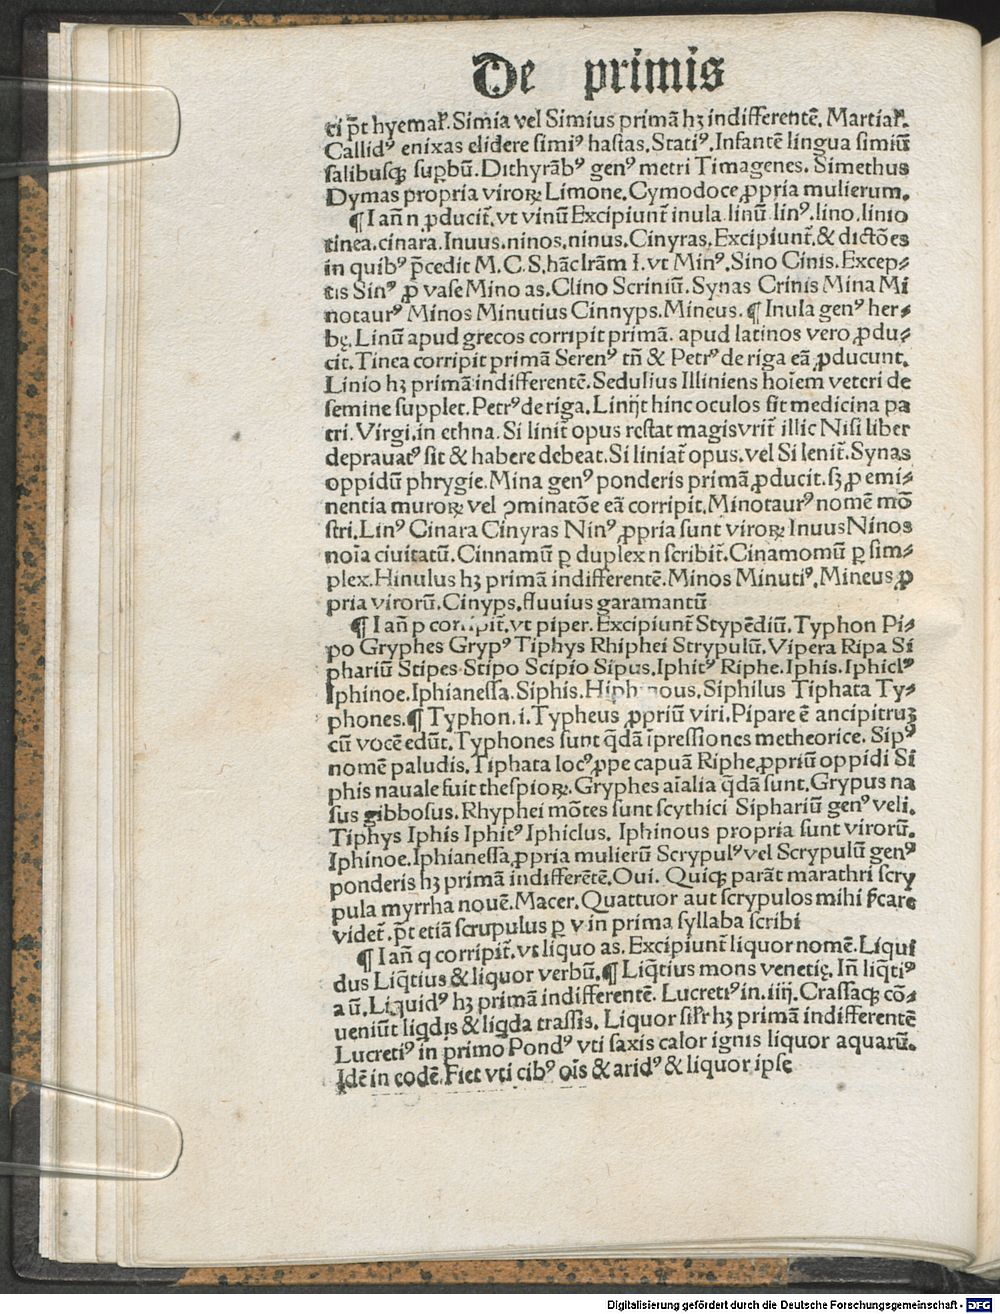 De primis
ci p̄t hyemaľ. Simia vel Simius primā hʒ indifferentē. Martiaľ.
Callidꝰ enixas elidere simiꝰ hastas. Statiꝰ. Infantē lingua simiū
salibusqꝫ suꝑbū. Dithyrābꝰ genꝰ metri Timagenes. Simethus
Dymas propria viroꝝ Limone. Cymodoce ꝓpria mulierum.
¶ I an̄ n ꝓducit̄. vt vinū Excipiunt̄ inula. linū linꝰ. lino. linio
tinea. cinara. Inuus. ninos. ninus. Cinyras. Excipiunt̄. & dictōes
in quibꝰ p̄cedit M. C. S. hāc lr̄am I. vt Minꝰ. Sino Cinis. Excep⸗
tis Sinꝰ ꝓ vase Mino as. Clino Scriniū. Synas Crinis Mina Mi
notaurꝰ Minos Minutius Cinnyps. Mineus. ¶ Inula genꝰ her⸗
bę. Linū apud grecos corripit primā. apud latinos vero ꝓdu⸗
cit. Tinea corripit primā Serenꝰ tn̄ & Petrꝰ de riga eā ꝓducunt.
Linio hʒ primā indifferentē. Sedulius Illiniens hoīem veteri de
semine supplet. Petrꝰ de riga. Linijt hinc oculos fit medicina pa
tri. Virgi. in ethna. Si linit̄ opus restat magis vrit̄ illic Nisi liber
deprauatꝰ sit & habere debeat. Si liniat̄ opus. vel Si lenit̄. Synas
oppidū phrygie. Mina genꝰ ponderis primā ꝓducit. sʒ ꝓ emi⸗
nentia muroꝝ vel ꝯminatōe eā corripit. Minotaurꝰ nomē mō
stri. Linꝰ Cinara Cinyras Ninꝰ ꝓpria sunt viroꝝ Inuus Ninos
noīa ciuitatū. Cinnamū ꝑ duplex n scribit̄. Cinamomū ꝑ sim⸗
plex. Hinulus hʒ primā indifferentē. Minos Minutiꝰ. Mineus ꝓ
pria virorū. Cinyps. fluuius garamantū
¶ I an̄ p corripit̄. vt piper. Excipiunt̄ Stypēdiū. Typhon Pi⸗
po Gryphes Grypꝰ Tiphys Rhiphei Strypulū. Vipera Ripa Si
phariū Stipes Stipo Scipio Sipus. Iphitꝰ Riphe. Iphis. Iphiclꝰ
Iphinoe. Iphianessa. Siphis. Siphilus Tiphata Ty⸗
phones. ¶ Typhon. i. Typheus ꝓpriū viri. Pipare ē ancipitruʒ
cū vocē edūt. Typhones sunt q̄dā īpressiones metheorice. Sipꝰ
nomē paludis. Tiphata locꝰ ꝓpe capuā Riphe ꝓpriū oppidi Si
phis nauale fuit thespioꝝ. Gryphes aīalia q̄dā sunt. Grypus na
sus gibbosus. Rhyphei mōtes sunt scythici Siphariū genꝰ veli.
Tiphys Iphis Iphitꝰ Iphiclus. Iphinous propria sunt virorū.
Iphinoe. Iphianessa ꝓpria mulierū Scrypulꝰ vel Scrypulū genꝰ
ponderis hʒ primā indifferētē. Oui. Quicqꝫ parāt marathri scry
pula myrrha nouē. Macer. Quattuor aut scrypulos mihi
videt̄. p̄t etiā scrupulus ꝑ v in prima syllaba scribi
¶ I an̄ q corripit̄. vt liquo as. Excipiunt̄ liquor nomē. Liqui
dus Liq̄tius & liquor verbū. ¶ Liq̄tius mons venetię. In̄ liq̄tiꝰ
a ū. Liquidꝰ hʒ primā indifferentē. Lucretiꝰ in. iiij. Crassaqꝫ cō⸗
ueniūt liqdis & liqda crassis. Liquor sil'r hʒ primā indifferentē
Lucretiꝰ in primo Pondꝰ vti saxis calor ignis liquor aquarū.
Idē in eodē. Fiet vti cibꝰ oīs & aridꝰ & liquor ipse
Digitalisierung gefördert durch die Deutsche Forschungsgemeinschaft - DFG